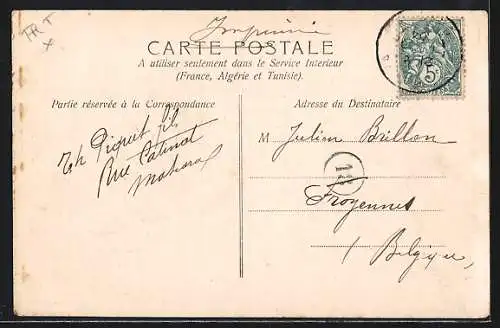 Imprimé
CARTE POSTALE
A utiliser seulement dans le Service Intérieur
(France, Algérie et Tunisie).
Partie réservée à la Correspondance
Adresse du Destinataire
Piquet fils
Rue Catinat
M Julien Brillon
Froyennes
Belgique
5